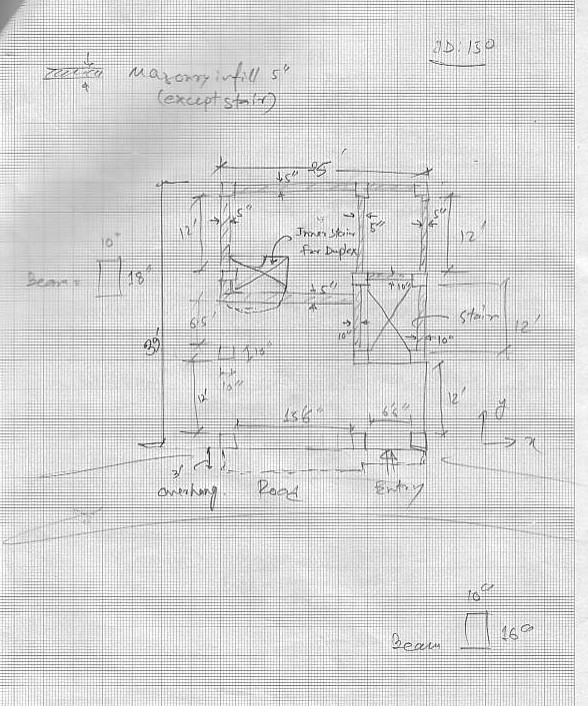 ID: 150
Masonry infill 5"
(except stair)
25'
5"
5"
5"
5"
12'
12'
Inner Stair
For Duplex
10"
Beam = 18"
10"
5"
Stair
12'
6.5'
10"
10"
39'
10"
10"
12'
12'
13'6"
6'6"
y
x
3'
overhang
Road
Entry
10"
Beam 16"